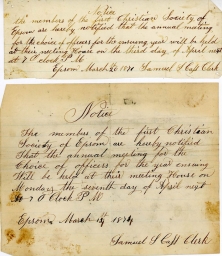 Notice
the members of the first Christian Society of
Epsom are hereby notified that the annual meeting
for the choice of officers for the ensuing year will be held
at their meeting House on the third day of April next
at 7 O clock P M
Epsom March 26 Samuel S Cass Clerk
Notice
The members of the first Christian
Society of Epsom are hereby notified
That the annual meeting for the
Choice of officers for the year ensuing
Will be held at their meeting House on
Monday the seventh day of April next
at 7 O Clock P M
Epsom March 1874
Samuel S Cass Clerk